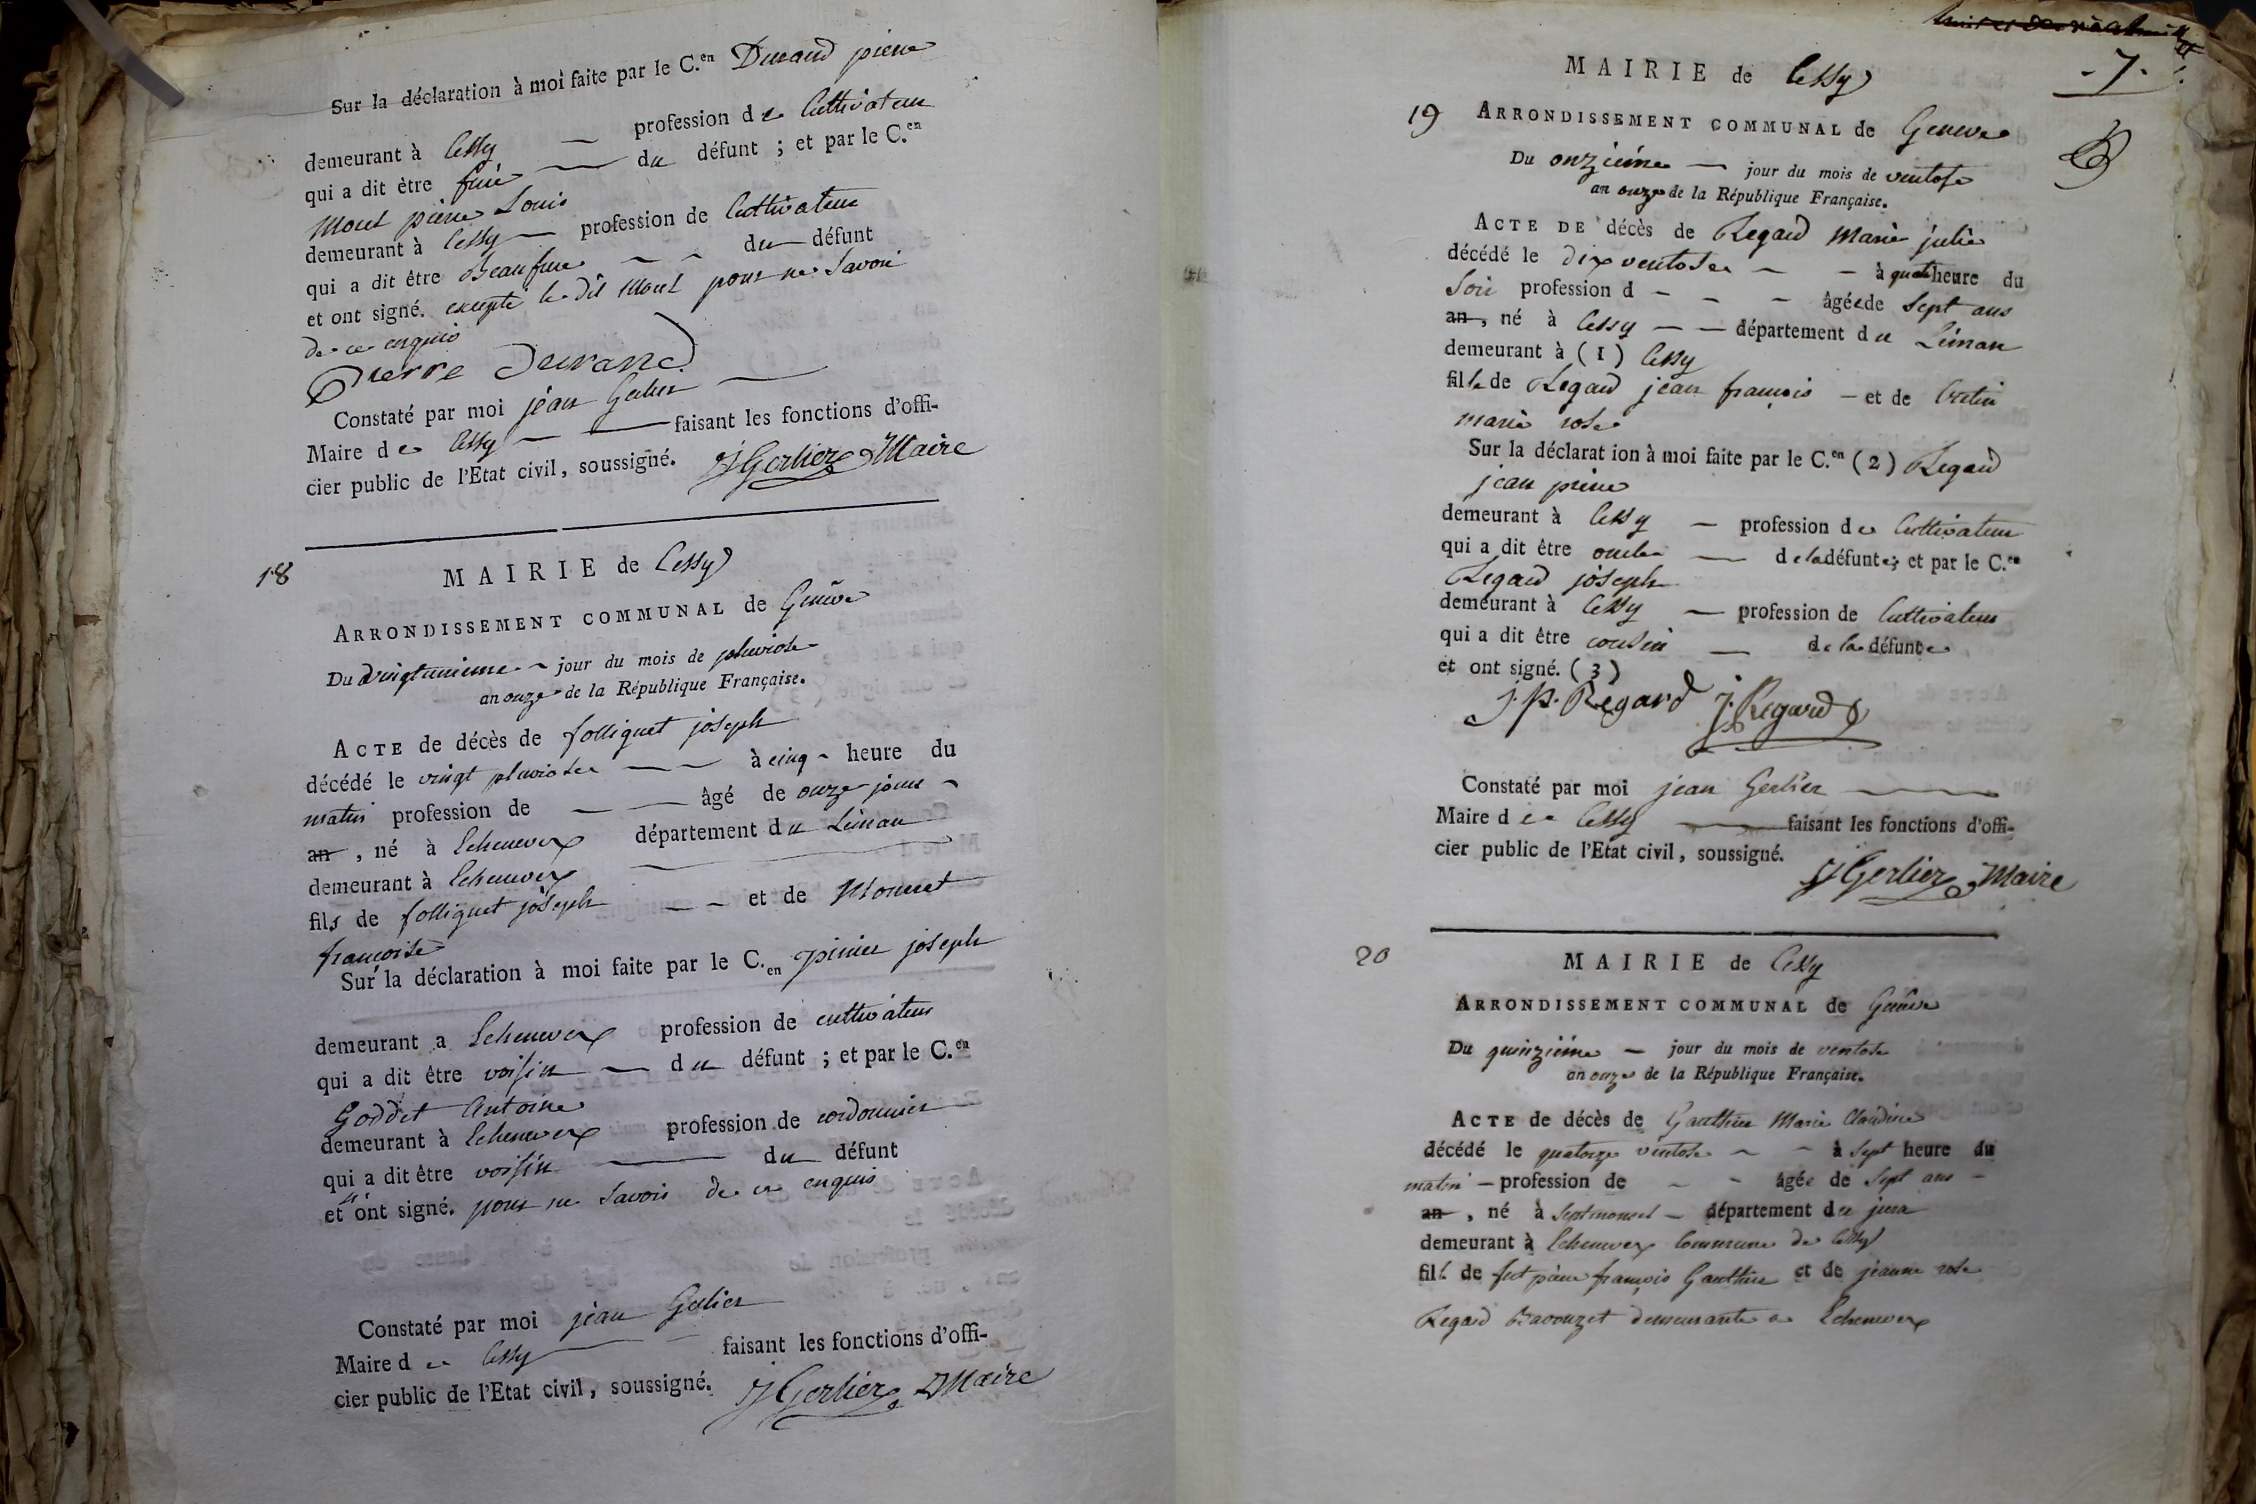 Sur la déclaration à moi faite par le C.en Durand pierre
demeurant à Cessy — profession de Cultivateur
qui a dit être frère — du défunt ; et par le C.en
Mout pierre Louis
demeurant à Cessy — profession de Cultivateur
qui a dit être Beaufrere — - du — défunt
et ont signé. excepté le dit Mout pour ne Savoir
de ce enquis
Pierre Durand
Constaté par moi jean Gerlier —
Maire de Cessy — — faisant les fonctions d'offi-
cier public de l'Etat civil, soussigné. J Gerlier Maire
18
MAIRIE de Cessy
ARRONDISSEMENT COMMUNAL de Genève
Du vingtunieme - jour du mois de pluviose
an onze de la République Française.
ACTE de décès de folliquet joseph
décédé le vingt pluviose — — à cinq - heure du
matin profession de — — âgé de onze jours -
an , né à Echenevex département du Léman
demeurant à Echenevex —
fils de folliquet joseph — - et de Mouret
francoise
Sur la déclaration à moi faite par le C.en pinier joseph
demeurant a Echenevex profession de cultivateur
qui a dit être voisin — du défunt ; et par le C.en
Goddet Antoine
demeurant à Echenevex profession de cordonnier
qui a dit être voisin — du défunt
et n'ont signé. pour ne Savoir de ce enquis
Constaté par moi jean Gerlier
Maire de Cessy — faisant les fonctions d'offi-
cier public de l'Etat civil, soussigné. J Gerlier Maire
- 7 -
MAIRIE de Cessy
19 ARRONDISSEMENT COMMUNAL de Geneve
Du onzieme — jour du mois de ventose
an onze de la République Française.
ACTE DE décès de Regard Marie julie
décédé le dix ventose - - à quatre heure du
Soir profession d - - - âgée de Sept ans
an, né à Cessy — — département du Léman
demeurant à (1) Cessy
fille de Regard jean françois — et de
marie rose
Sur la déclarat ion à moi faite par le C.en (2) Regard
jean pierre
demeurant à Cessy — profession de Cultivateur
qui a dit être oncle — de la défunte ; et par le C.en
Regard joseph
demeurant à Cessy — profession de Cultivateur
qui a dit être cousin — de la défunte
et ont signé. (3)
j. p. Regard j. Regard
Constaté par moi jean Gerlier —
Maire de Cessy — faisant les fonctions d'offi-
cier public de l'Etat civil, soussigné.
J Gerlier Maire
20
MAIRIE de Cessy
ARRONDISSEMENT COMMUNAL de Genève
Du quinzieme — jour du mois de ventose
an onze de la République Française.
ACTE de décès de Gauthier Marie Claudine
décédé le quatorze ventose - - à Sept heure du
matin — profession de - - âgée de Sept ans -
an , né à Septmoncel — département du jura
demeurant à Echenevex Commune de Cessy
fille de feu pierre françois Gauthier et de jeanne rose
Regard Bavouzet demeurante a Echenevex